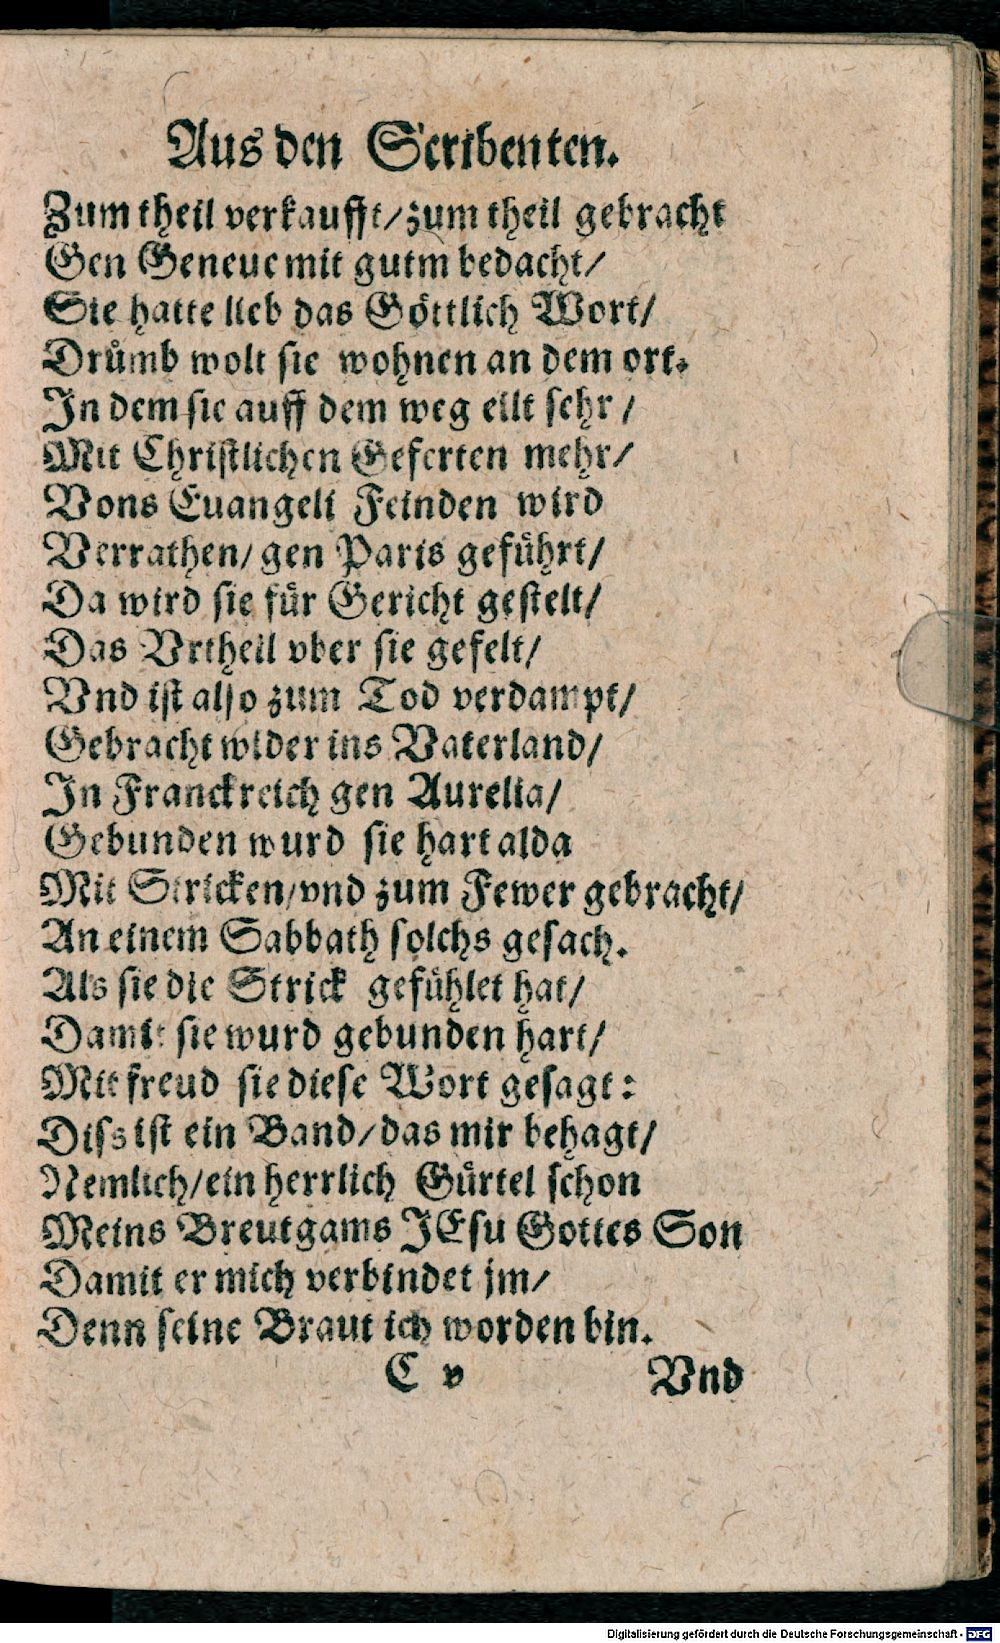 Aus den Scribenten.
Zum theil verkaufft/zum theil gebracht
Gen Geneue mit gutm bedacht/
Sie hatte lieb das Göttlich Wort/
Drůmb wolt sie wohnen an dem ort.
In dem sie auff dem weg eilt sehr /
Mit Christlichen Geferten mehr/
Vons Euangeli Feinden wird
Verrathen/ gen Paris geführt/
Da wird sie für Gericht gestelt/
Das Vrtheil vber sie gefelt/
Vnd ist also zum Tod verdampt/
Gebracht wider ins Vaterland/
In Franckreich gen Aurelia/
Gebunden wurd sie hart alda
Mit Stricken/vnd zum Fewer gebracht/
An einem Sabbath solchs gesach.
Als sie die Strick gefühlet hat/
Damit sie wurd gebunden hart/
Mit freud sie diese Wort gesagt:
Diss ist ein Band/das mir behagt/
Nemlich/ein herrlich Gürtel schon
Meins Breutgams JEsu Gottes Son
Damit er mich verbindet jm/
Denn seine Braut ich worden bin.
C v Vnd
Digitalisierung gefördert durch die Deutsche Forschungsgemeinschaft - DFG